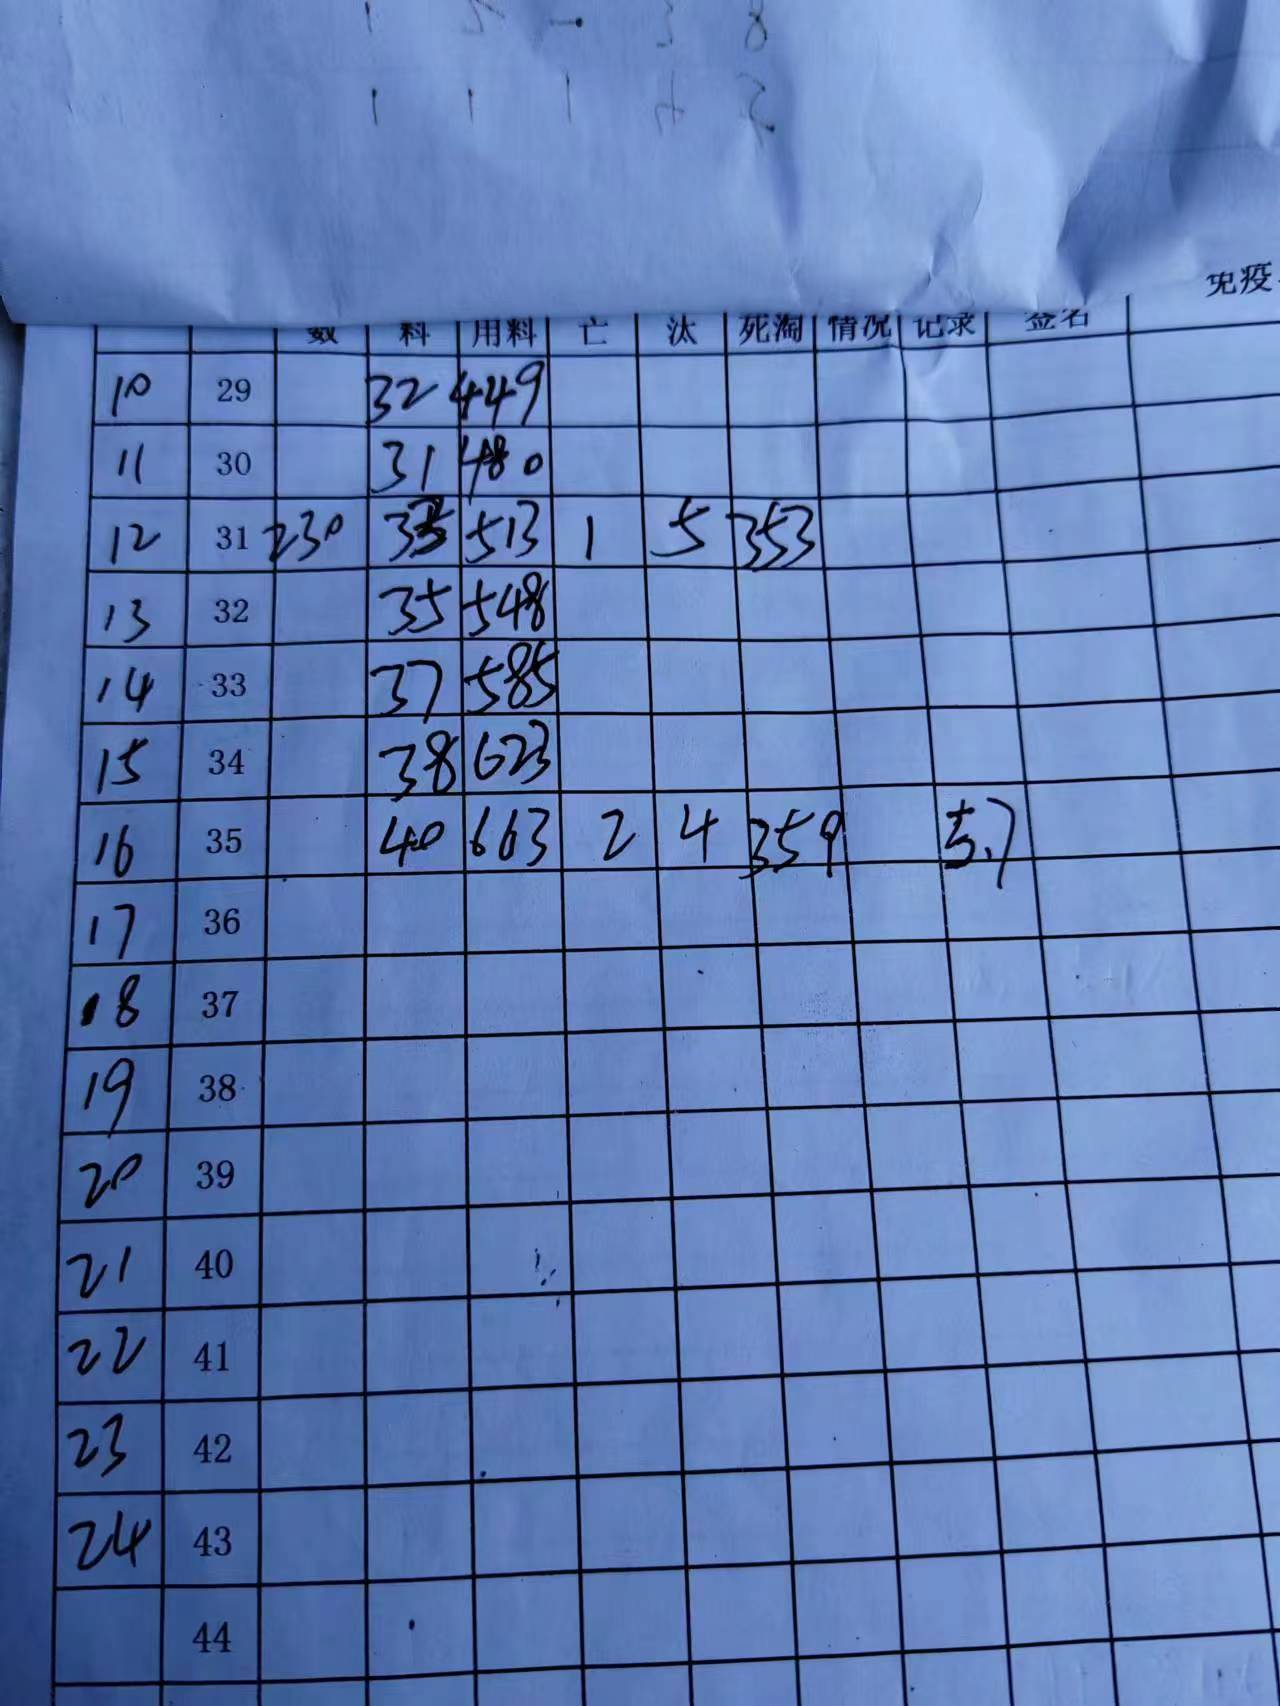 1 5 - 3 8
1 1 1 4 2
免疫
数 料 用料 亡 汰 死淘 情况 记录 签名
10 29 32 449
11 30 31 480
12 31 230 33 513 1 5 353
13 32 35 548
14 33 37 585
15 34 38 623
16 35 40 663 2 4 359 5.7
17 36
18 37
19 38
20 39
21 40
22 41
23 42
24 43
44